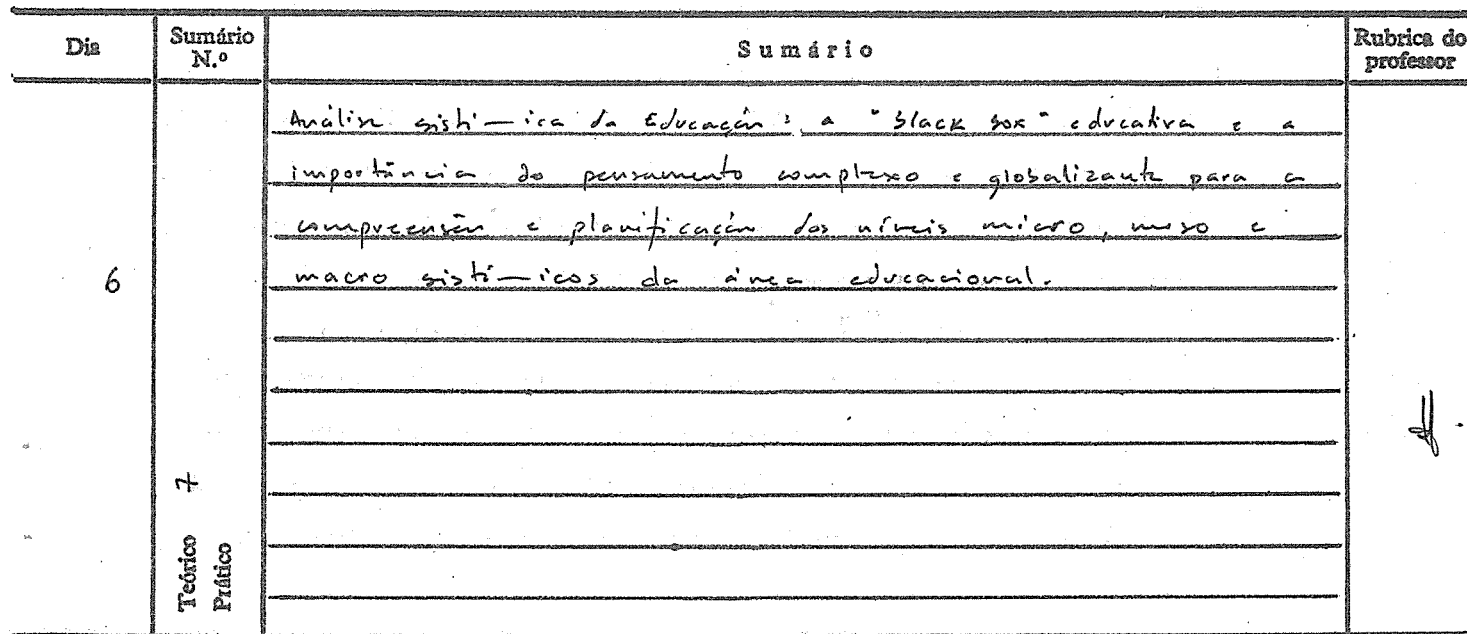 Dia
Sumário N.º
Sumário
Rubrica do professor
Análise sistémica da Educação: a "black box" educativa e a
importância do pensamento complexo e globalizante para a
compreensão e planificação dos níveis micro, meso e
6
macro sistémicos da área educacional.
7
Teórico
Prático